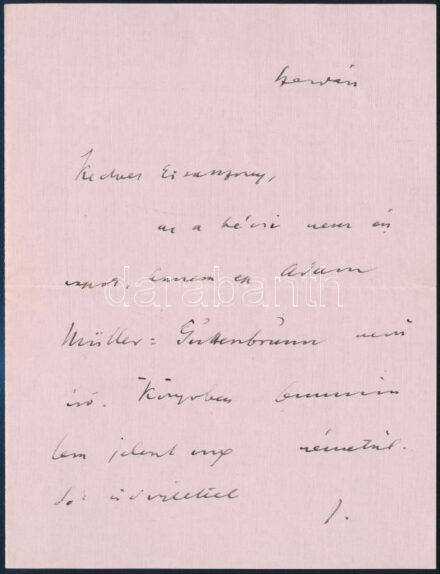 Szerdán
Kedves Kisasszony,
az a bécsi nem én
vagyok, hanem egy Adam
Müller=Guttenbrunn nevű
író. Könyvben semmim
sem jelent meg németül.
Jó üdvözlettel
J.
darabanth